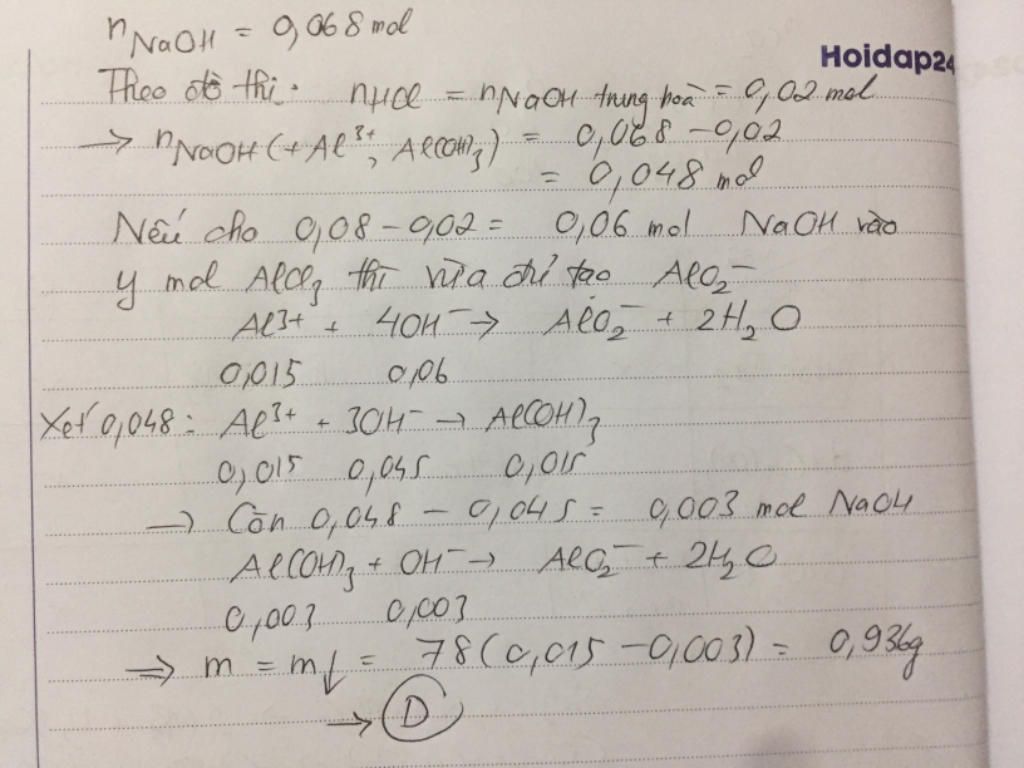 nNaOH = 0,068 mol
Hoidap24
Theo đồ thị: nHCl = nNaOH trung hoà = 0,02 mol
→ nNaOH (+Al³⁺, Al(OH)₃) = 0,068 - 0,02
= 0,048 mol
Nếu cho 0,08 - 0,02 = 0,06 mol NaOH vào
y mol AlCl₃ thì vừa đủ tạo AlO₂⁻
Al³⁺ + 4OH⁻ → AlO₂⁻ + 2H₂O
0,015 0,06
Xét 0,048: Al³⁺ + 3OH⁻ → Al(OH)₃
0,015 0,045 0,015
→ Còn 0,048 - 0,045 = 0,003 mol NaOH
Al(OH)₃ + OH⁻ → AlO₂⁻ + 2H₂O
0,003 0,003
⇒ m = m↓ = 78(0,015 - 0,003) = 0,936g
→ D